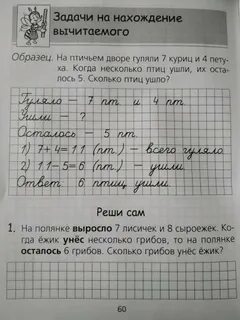 Задачи на нахождение
вычитаемого
Образец. На птичьем дворе гуляли 7 куриц и 4 пету-
ха. Когда несколько птиц ушли, их оста-
лось 5. Сколько птиц ушло?
Гуляло – 7 пт. и 4 пт.
Ушли – ?
Осталось – 5 пт.
1) 7+4=11 (пт.) – всего гуляло.
2) 11–5=6 (пт.) – ушли.
Ответ: 6 птиц ушли.
Реши сам
1. На полянке выросло 7 лисичек и 8 сыроежек. Ко-
гда ёжик унёс несколько грибов, то на полянке
осталось 6 грибов. Сколько грибов унёс ёжик?
60